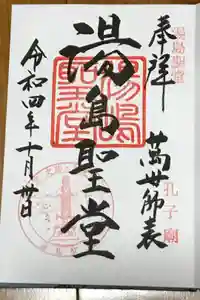 奉拝
萬世師表
湯島聖堂
令和四年十月廿日
湯島聖堂
孔子廟
湯島聖堂